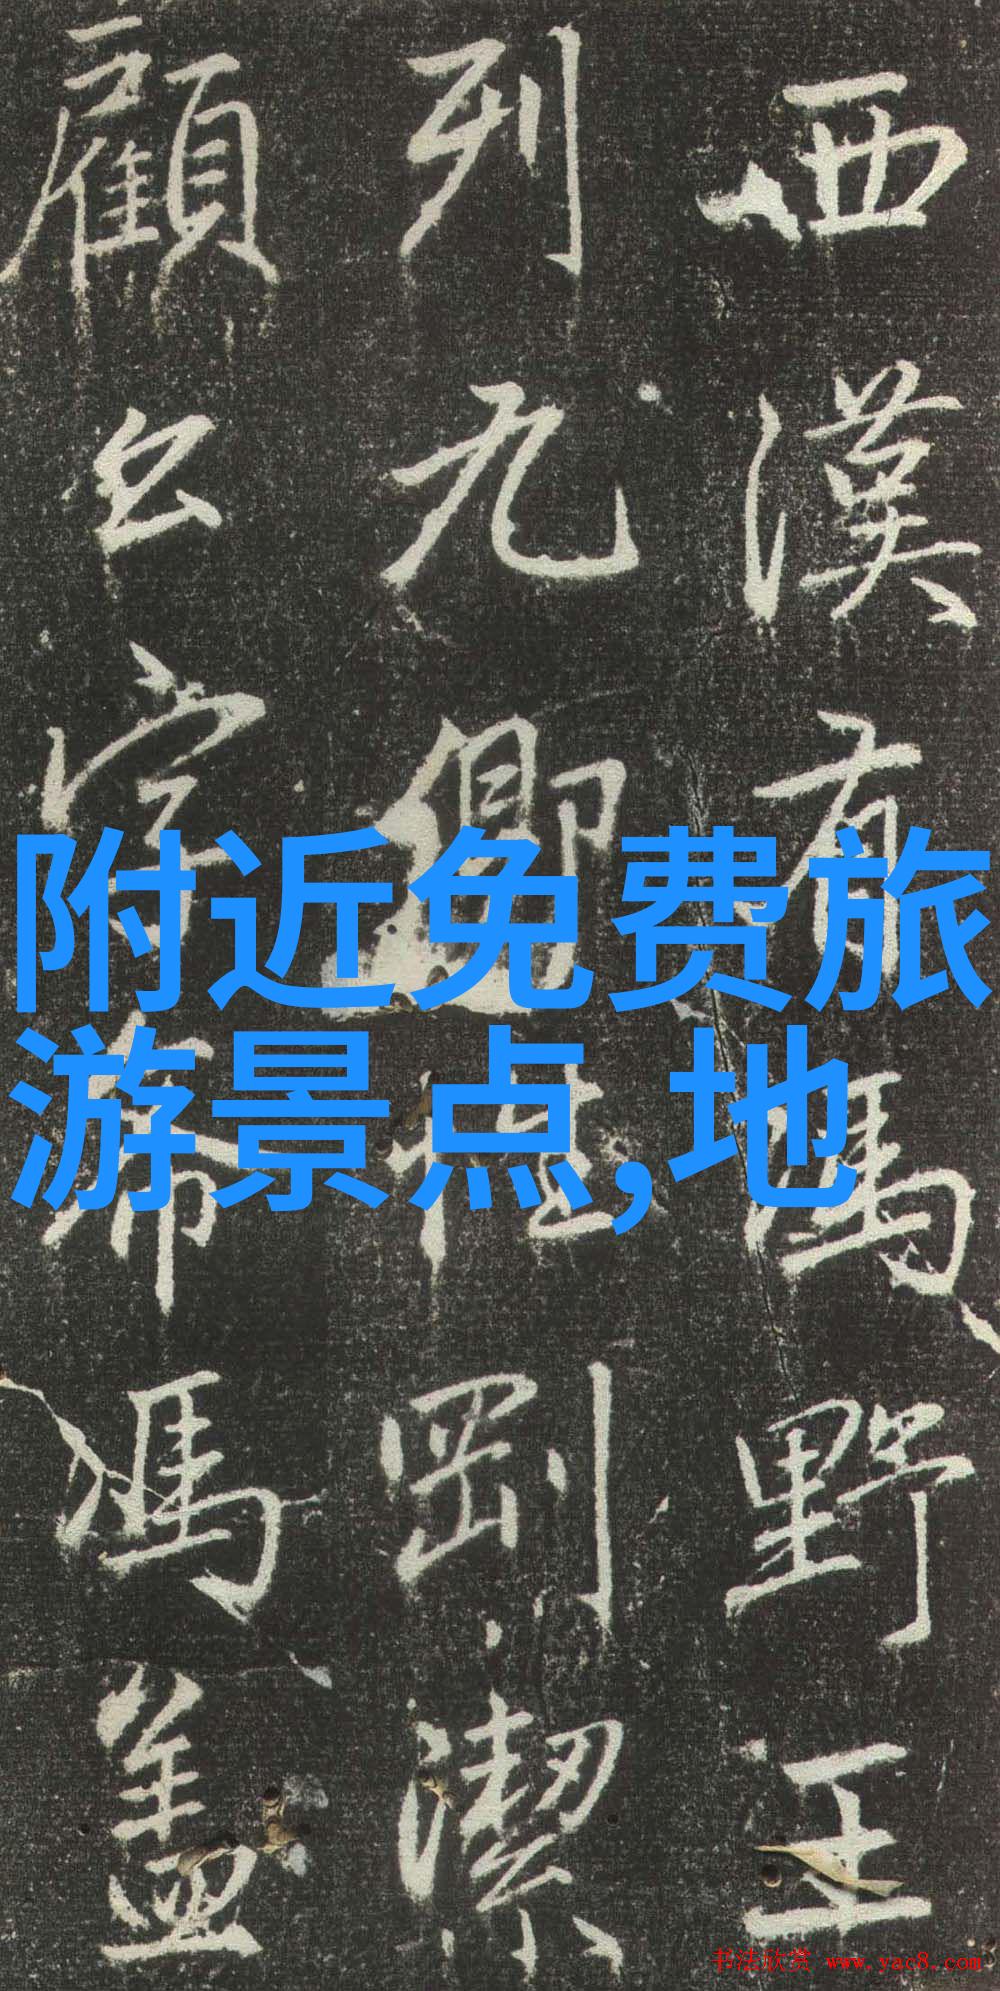 西漢有馮野王
列九卿性剛潔
顧馮盖
附近免费旅
游景点,地
书法欣赏 www.yac8.com